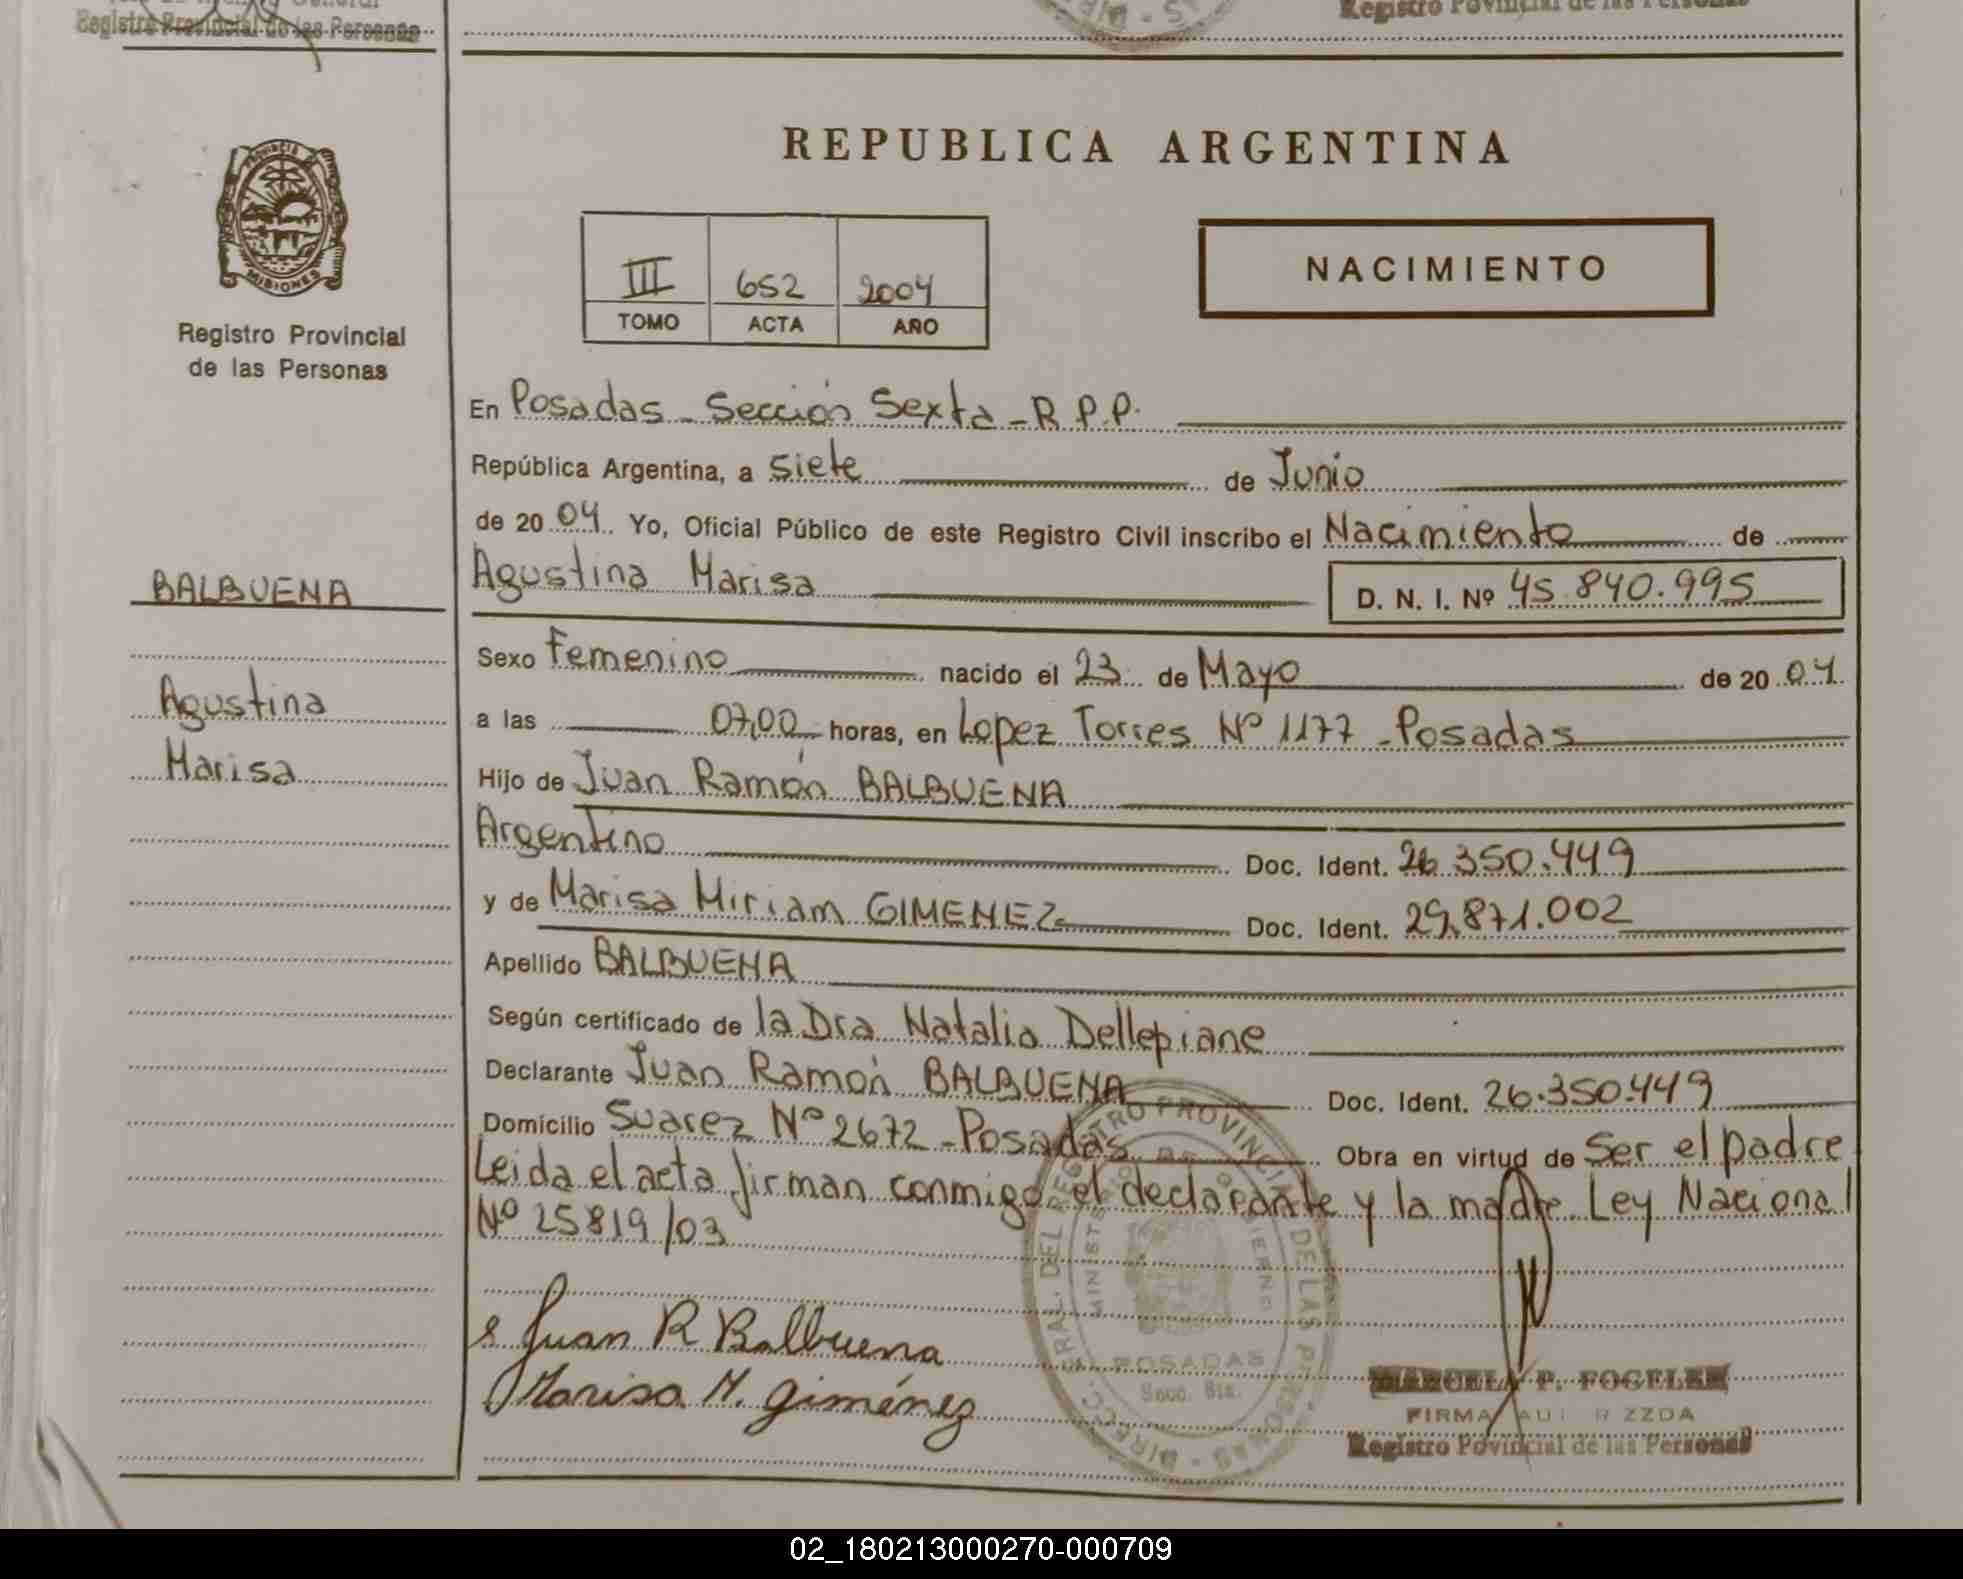 Registro Provincial de las Personas
Registro Povincial de las Personas
REPUBLICA ARGENTINA
PROVINCIA DE
MISIONES
Registro Provincial
de las Personas
III 652 2004
TOMO ACTA AÑO
NACIMIENTO
En Posadas - Sección Sexta - R.P.P.
República Argentina, a siete de Junio
de 2004 Yo, Oficial Público de este Registro Civil inscribo el Nacimiento de
Agustina Marisa D. N. I. Nº 45.840.995
BALBUENA
Agustina
Marisa
Sexo Femenino nacido el 23 de Mayo de 2004
a las 07,00 horas, en Lopez Torres Nº 1177 - Posadas
Hijo de Juan Ramón BALBUENA
Argentino Doc. Ident. 26.350.449
y de Marisa Miriam GIMENEZ Doc. Ident. 29.871.002
Apellido BALBUENA
Según certificado de la Dra Natalia Dellepiane
Declarante Juan Ramón BALBUENA Doc. Ident. 26.350.449
Domicilio Suarez Nº 2672 - Posadas Obra en virtud de Ser el padre
Leida el acta firman conmigo el declarante y la madre. Ley Nacional
Nº 25819/03
Juan R Balbuena
Marisa M. Giménez
DIRECC. GRAL. DEL REGISTRO PROVINCIAL DE LAS PERSONAS
MINISTERIO DE GOBIERNO
POSADAS
Secc. 6ta.
MARCELA P. FOGELER
FIRMA AUT R ZZDA
Registro Povincial de las Personas
02_180213000270-000709